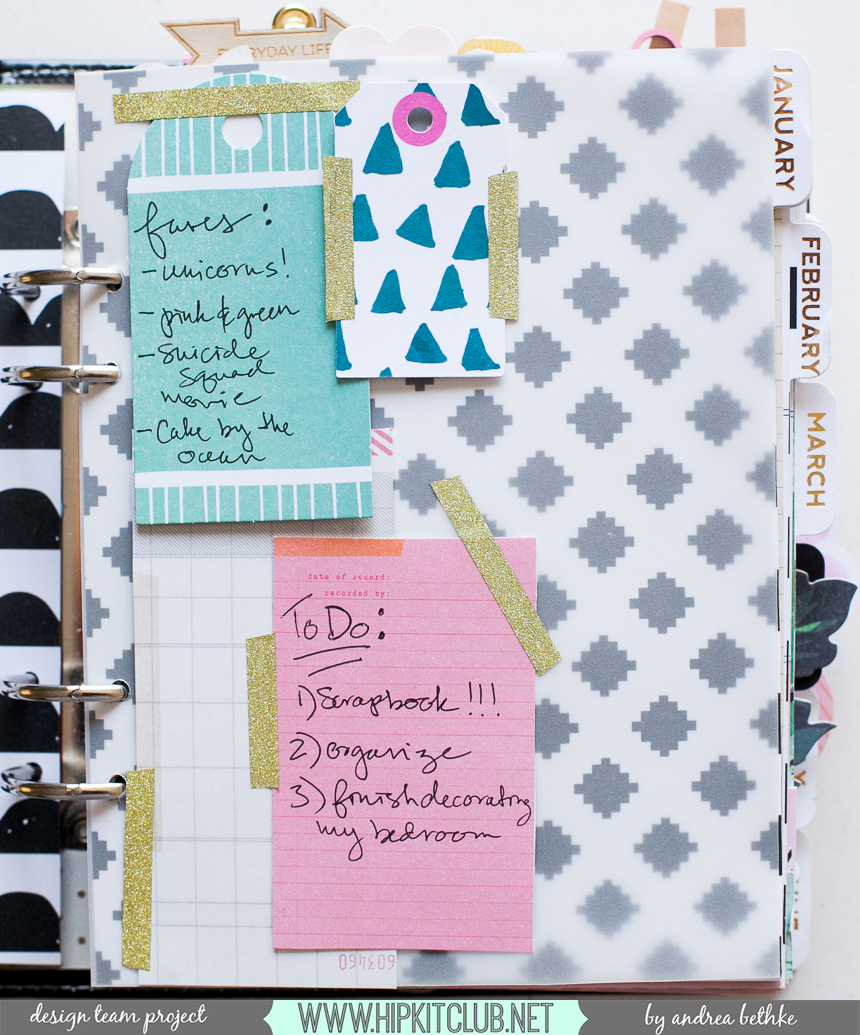 EVERYDAY LIFE
JANUARY
FEBRUARY
MARCH
faves:
- unicorns!
- pink & green
- Suicide
Squad
movie
- Cake by the
ocean
date of record:
recorded by:
To Do:
1) Scrapbook!!!
2) organize
3) finish decorating
my bedroom
094360
design team project
WWW.HIPKITCLUB.NET
by andrea bethke